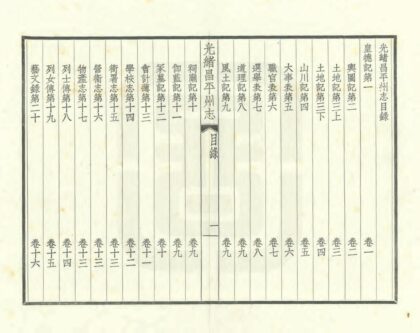 光緒昌平州志目錄
皇德記第一 卷一
輿圖記第二 卷二
土地記第三上 卷三
土地記第三下 卷四
山川記第四 卷五
大事表第五 卷六
職官表第六 卷七
選舉表第七 卷八
道理記第八 卷九
風土記第九 卷九
光緒昌平州志 目錄 一
祠廟記第十 卷九
伽藍記第十一 卷九
冢墓記第十二 卷十
會計簿第十三 卷十一
學校志第十四 卷十二
衙署志第十五 卷十三
營衛志第十六 卷十三
物產志第十七 卷十三
列士傳第十八 卷十四
列女傳第十九 卷十五
藝文錄第二十 卷十六